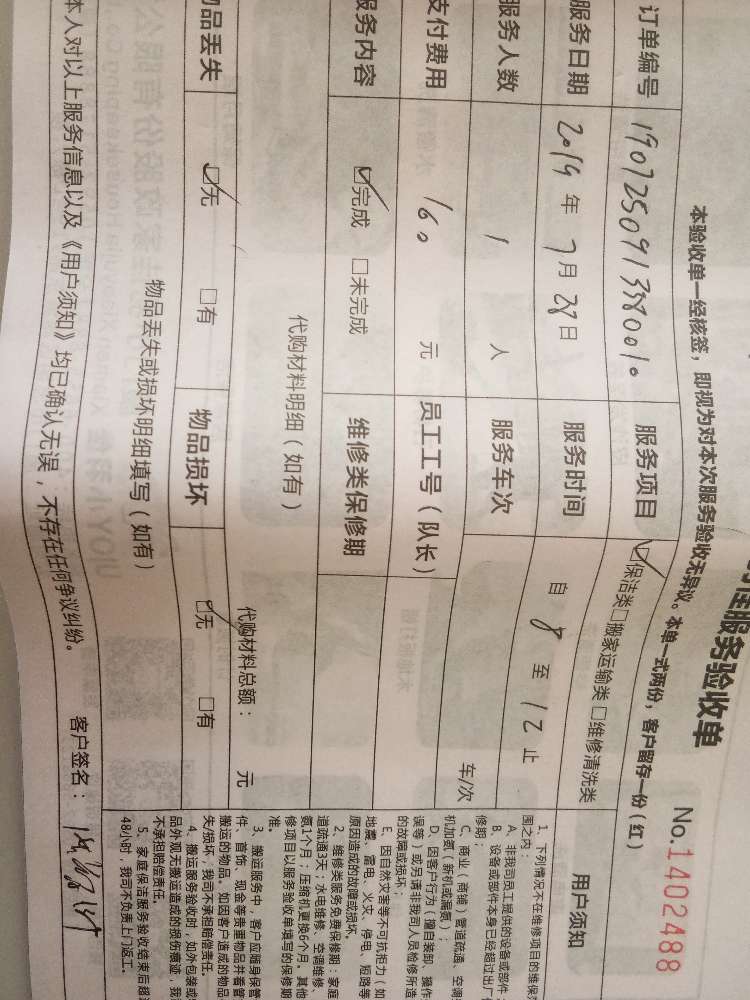 服务验收单
No.1402488
本验收单一经核签，即视为对本次服务验收无异议。本单一式两份，客户留存一份（红）
订单编号 服务项目 ☑保洁类□搬家运输类□维修清洗类 用户须知
服务日期 2019 年 7 月 28 日 服务时间 自 8 至 12 止
服务人数 1 人 服务车次 车/次
支付费用 160 元 员工工号（队长）
服务内容 ☑完成 □未完成 维修类保修期
代购材料明细（如有） 代购材料总额： 元
物品丢失 ☑无 □有 物品损坏 ☑无 □有
物品丢失或损坏明细填写（如有）
本人对以上服务信息以及《用户须知》均已确认无误，不存在任何争议纠纷。 客户签名：
1、下列情况不在维修项目的维保
围之内：
A、非我司员工提供的设备或部件
B、设备或部件本身已经超过出厂
修期；
C、商业（商铺）管道疏通、空调
机加氨（新机或漏氨）；
D、因客户行为（擅自装卸、操作
误等）或另请非我司人员检修所造
的故障或损坏；
E、因自然灾害等不可抗拒力（如
地震、雷电、火灾、停电、短路等
原因造成的故障或损坏。
2、维修类服务免费保修期：家庭
道疏通3天；水电维修、空调维修、
氨1个月；压缩机更换6个月。其他
修项目以服务验收单填写的保修期
准。
3、搬运服务中，客户应随身保管
件、首饰、现金等贵重物品并看管
搬运的物品。如因客户造成的物品
失/损坏，我司不承担赔偿责任。
4、搬运服务验收时，如外包装或
品外观无搬运造成的损伤痕迹，我
不承担赔偿责任。
5、家庭保洁服务验收结束后超
48小时，我司不负责上门返工。